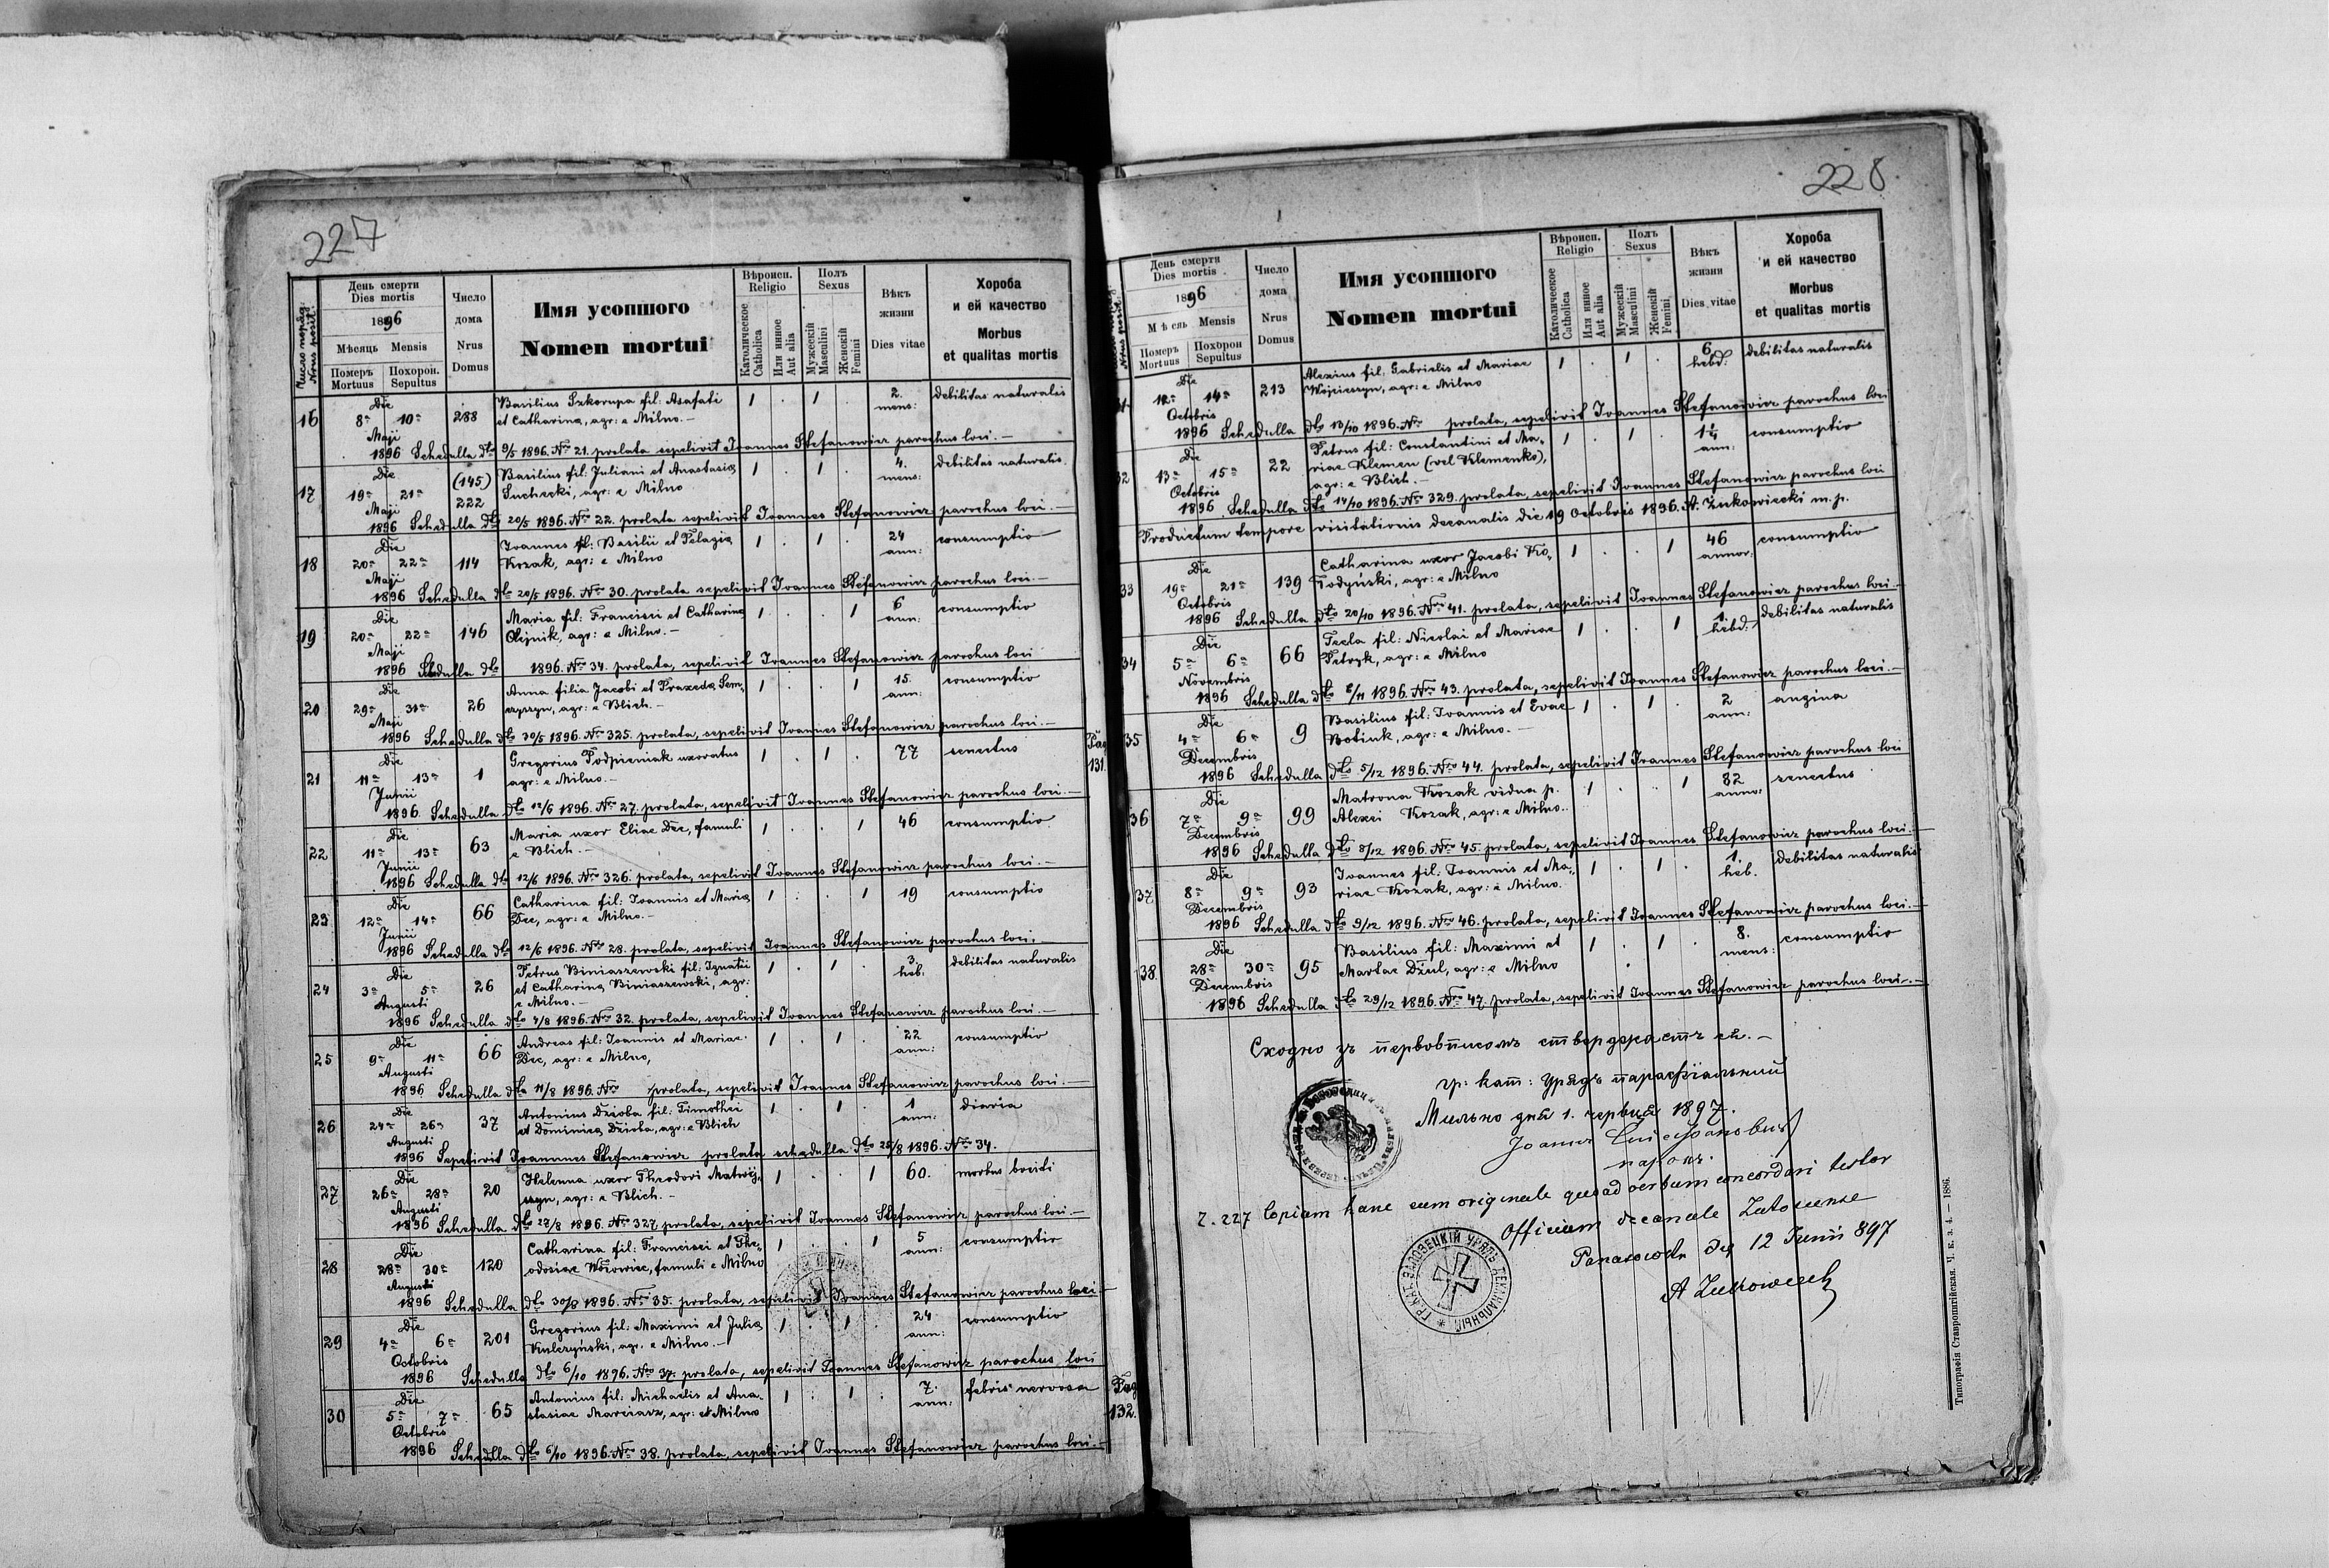 227
Число поряд.
Nrus posit.
День смерти
Dies mortis
1896
Мѣсяць Mensis
Померъ
Mortuus
Похорон.
Sepultus
Число
дома
Nrus
Domus
Имя усопшого
Nomen mortui
Вѣроисп.
Religio
Католическое
Catholica
Или инное
Aut alia
Полъ
Sexus
Мужескій
Masculini
Женскій
Femini
Вѣкъ
жизни
Dies vitae
Хороба
и ей качество
Morbus
et qualitas mortis
Die
16 8a 10a 288 Basilius Szkorupa fil: Asafati 1 . 1 . 2. mens: debilitas naturalis
Maji et Catharina, agr: e Milno.—
1896 Schedulla dto 9/5 1896. Nro 21. prolata sepelivit Joannes Stefanowicz parochus loci.—
Die (145) Basilius fil: Juliani et Anastasia 1 . 1 . 4. mens: debilitas naturalis.
17 19a 21a 222 Suchecki, agr: e Milno
Maji
1896 Schedulla dto 20/5 1896. Nro 22. prolata sepelivit Joannes Stefanowicz parochus loci.—
Die Joannes fil: Basilii et Pelagia 1 . 1 . 24 ann: consumptio
18 20a 22a 114 Kozak, agr: e Milno
Maji
1896 Schedulla dto 20/5 1896. Nro 30. prolata sepelivit Joannes Stefanowicz parochus loci.—
Die Maria fil: Francisci et Catharina 1 . . 1 6 ann: consumptio
19 20a 22a 146 Olijnik, agr: e Milno.—
Maji
1896 Schedulla dto 1896. Nro 34. prolata, sepelivit Joannes Stefanowicz parochus loci
Die Anna filia Jacobi et Praxeda Sem- 1 . . 1 15. ann: consumptio
20 29a 31a 26 czyszyn, agr: e Blich.—
Maji
1896 Schedulla dto 30/5 1896. Nro 325. prolata, sepelivit Joannes Stefanowicz parochus loci.—
Die Gregorius Podpieniak uxoratus 1 . 1 . 77 senectus
21 11a 13a 1 agr: e Milno.—
Junii
1896. Schedulla dto 12/6 1896. Nro 27. prolata, sepelivit Joannes Stefanowicz parochus loci.—
Pag
131.
Die Maria uxor Eliae Dec, famuli 1 . . 1 46 consumptio
22 11a 13a 63 e Blich.—
Junii
1896 Schedulla dto 12/6 1896. Nro 326. prolata, sepelivit Joannes Stefanowicz parochus loci.—
Die Catharina fil: Joannis et Maria 1 . . 1 19 consumptio
23 12a 14a 66 Dec, agr: e Milno.—
Junii
1896 Schedulla dto 12/6 1896. Nro 28. prolata, sepelivit Joannes Stefanowicz parochus loci,
Die Petrus Biniaszewski fil: Ignatii 1 . 1 . 3. heb: debilitas naturalis
24 3a 5a 26 et Catharina Biniaszewski, agr:
Augusti e Milno.—
1896 Schedulla dto 4/8 1896. Nro 32. prolata, sepelivit Joannes Stefanowicz parochus loci.—
Die Andreas fil: Joannis et Mariae 1 . 1 . 22 ann: consumptio
25 9a 11a 66 Dec, agr: e Milno,
Augusti
1896 Schedulla dto 11/8 1896. Nro prolata, sepelivit Joannes Stefanowicz parochus loci.—
Die Antonius Dzioba fil: Timothei 1 . 1 . 1 ann: diaria
26 24a 26a 37 et Dominica Dzioba, agr: e Blich
Augusti
1896 Sepelivit Joannes Stefanowicz prolata schedulla dto 25/8 1896. Nro 34.
Die Helena uxor Theodori Matwij- 1 . . 1 60. morbus
27 26a 28a 20 szyn, agr: e Blich.—
Augusti
1896 Schedulla dto 28/8 1896. Nro 327 prolata, sepelivit Joannes Stefanowicz parochus loci.—
Die Catharina fil: Francisci et The- 1 . . 1 5 ann: consumptio
28 28a 30a 120 odosiae Wozowicz, famuli e Milno
Augusti
1896 Schedulla dto 30/8 1896. Nro 35. prolata, sepelivit Joannes Stefanowicz parochus loci—
Die Gregorius fil: Maximi et Julia 1 . 1 . 24 ann: consumptio
29 4a 6a 201 Kulczyński, agr. e Milno.—
Octobris
1896 Schedulla dto 6/10 1896. Nro 37. prolata, sepelivit Joannes Stefanowicz parochus loci
Die Antonius fil: Michaelis et Ana- 1 . 1 . 7. ann: febris nervosa
30 5a 7a 65 stasiae Marciasz, agr: e Milno
Octobris
1896 Schedulla dto 6/10 1896. Nro 38. prolata, sepelivit Joannes Stefanowicz parochus loci.—
Pag
132.
228
Nrus posit.
День смерти
Dies mortis
1896
Мѣсяць Mensis
Померъ
Mortuus
Похорон
Sepultus
Число
дома
Nrus
Domus
Имя усопшого
Nomen mortui
Вѣроисп.
Religio
Католическое
Catholica
Или инное
Aut alia
Полъ
Sexus
Мужескій
Masculini
Женскій
Femini
Вѣкъ
жизни
Dies vitae
Хороба
и ей качество
Morbus
et qualitas mortis
Die Alexius fil: Gabrielis et Mariae 1 . 1 . 6 hebd. debilitas naturalis
31. 12a 14a 213 Wojcieszyn, agr: e Milno
Octobris
1896 Schedulla dto 13/10 1896. Nro prolata, sepelivit Joannes Stefanowicz parochus loci
Die Petrus fil: Constantini et Ma- 1 . 1 . 1 1/4 ann: consumptio
32 13a 15a 22 riae Klemen (vel Klemenko),
Octobris agr: e Blich.—
1896 Schedulla dto 14/10 1896. Nro 329. prolata, sepelivit Joannes Stefanowicz parochus loci
Productum tempore visitationis decanalis die 19 Octobris 1896. A. Żukowiecki m. p.
Die Catharina uxor Jacobi Ko- 1 . . 1 46 annor: consumptio
33 19a 21a 139 łodyński, agr: e Milno
Octobris
1896 Schedulla dto 20/10 1896. Nro 41. prolata, sepelivit Joannes Stefanowicz parochus loci.—
Die Tecla fil: Nicolai et Mariae 1 . . 1 1. hebd: debilitas naturalis
34 5a 6a 66 Petryk, agr: e Milno
Novembris
1896 Schedulla dto 6/11 1896. Nro 43. prolata, sepelivit Joannes Stefanowicz parochus loci.—
Die Basilius fil: Joannis et Evae 1 . 1 . 2 ann: angina
35 4a 6a 9 Botiuk, agr: e Milno.—
Decembris
1896 Schedulla dto 5/12 1896. Nro 44. prolata, sepelivit Joannes Stefanowicz parochus loci
Die Matrona Kozak vidua p. 1 . . 1 82 anno: senectus
36 7a 9a 99 Alexei Kozak, agr: e Milno..
Decembris
1896 Schedulla dto 8/12 1896. Nro 45. prolata, sepelivit Joannes Stefanowicz parochus loci.—
Die Joannes fil: Joannis et Ma- 1 . 1 . 1. heb. debilitas naturalis
37 8a 9a 93 riae Kozak, agr: e Milno.
Decembris
1896 Schedulla dto 9/12 1896. Nro 46. prolata, sepelivit Joannes Stefanowicz parochus loci.—
Die Basilius fil: Maximi et 1 . 1 . 8. mens: consumptio
38. 28a 30a 95 Martae Dziul, agr: e Milno
Decembris
1896 Schedulla dto 29/12 1896. Nro 47. prolata, sepelivit Joannes Stefanowicz parochus loci.—
Сходно зъ первописомъ стверджаєтъ ся.—
гр: кат: Урядъ парафіяльный
Мильно дня 1. червня 1897.
парохъ.
Z. 227 Copiam hanc cum originale quoad verbum concordari testor
Officium decanale Załoscense
Panasówka die 12 Junii 897
ГР. КАТ. ЗАЛОЗЕЦКІЙ УРЯДЪ ДЕКАНАЛЬНЫЙ
A Żukowiecki
Типографія Ставропигійская. Ч. к. з. 4. — 1886.